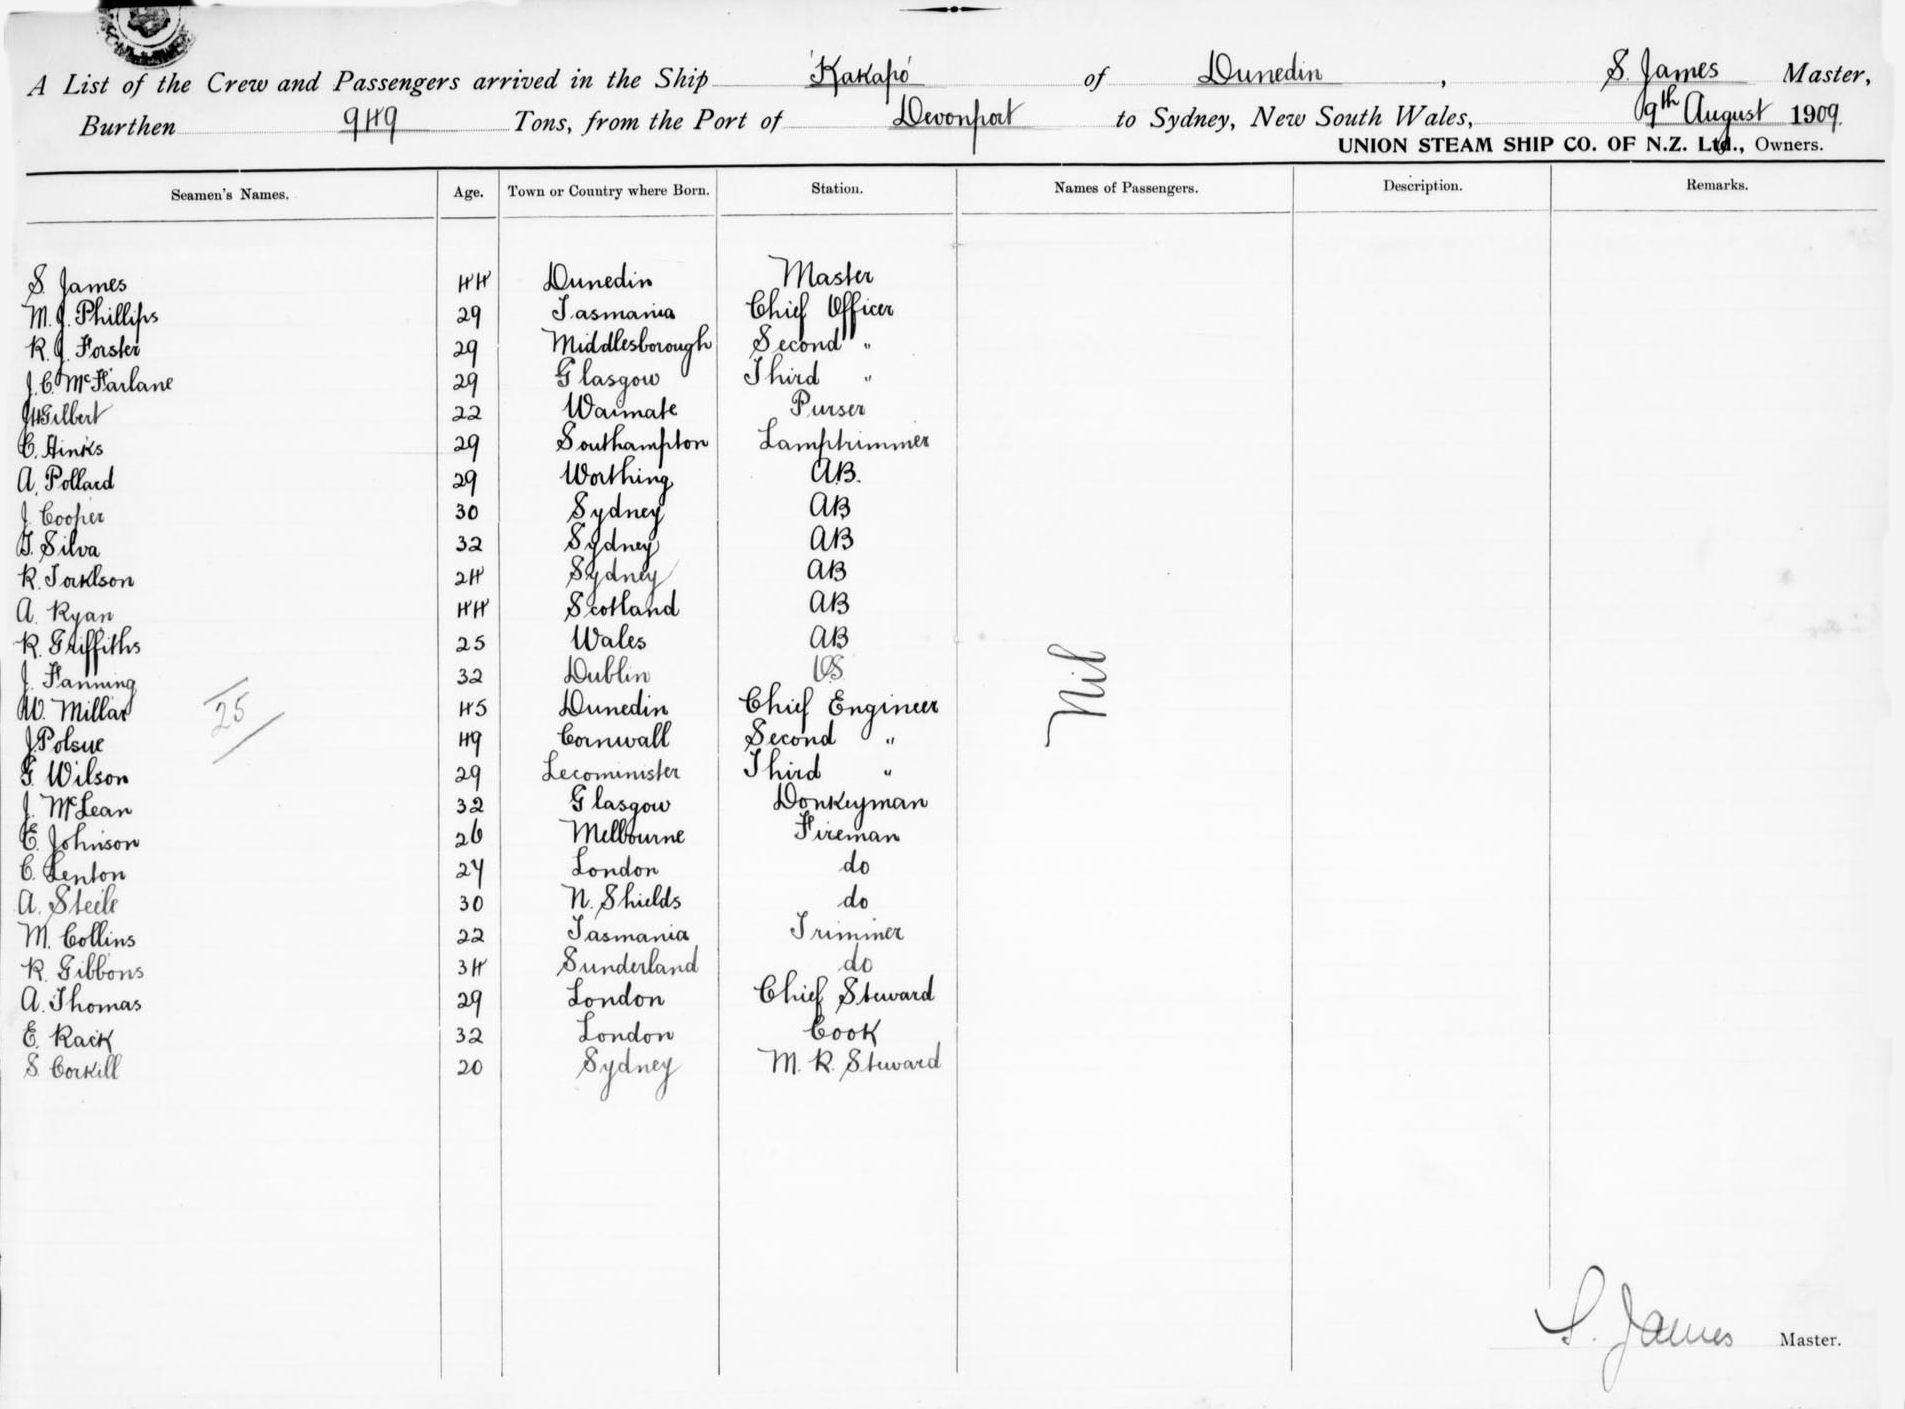 A List of the Crew and Passengers arrived in the Ship 'Kakapo' of Dunedin, S. James Master,
Burthen 949 Tons, from the Port of Devonport to Sydney, New South Wales, 9th August 1909.
UNION STEAM SHIP CO. OF N.Z. Ltd., Owners.
Seamen's Names. Age. Town or Country where Born. Station. Names of Passengers. Description. Remarks.
S. James 44 Dunedin Master
M. J. Phillips 29 Tasmania Chief Officer
R. J. Forster 29 Middlesborough Second "
J. C. McFarlane 29 Glasgow Third "
JH Gilbert 22 Waimate Purser
C. Hinks 29 Southampton Lamptrimmer
A. Pollard 29 Worthing A.B.
J. Cooper 30 Sydney AB
J. Silva 32 Sydney AB
R. Torklson 24 Sydney AB
A. Ryan 44 Scotland AB
R. Griffiths 25 Wales AB
J. Fanning 32 Dublin OS
W. Millar 45 Dunedin Chief Engineer
J. Polsue 49 Cornwall Second "
G. Wilson 29 Lecominister Third "
J. McLean 32 Glasgow Donkeyman
E. Johnson 26 Melbourne Fireman
C. Lenton 24 London do
A. Steele 30 N. Shields do
M. Collins 22 Tasmania Trimmer
R. Gibbons 34 Sunderland do
A. Thomas 29 London Chief Steward
E. Rack 32 London Cook
S. Corkill 20 Sydney M. R. Steward
25
Nil
S. James Master.